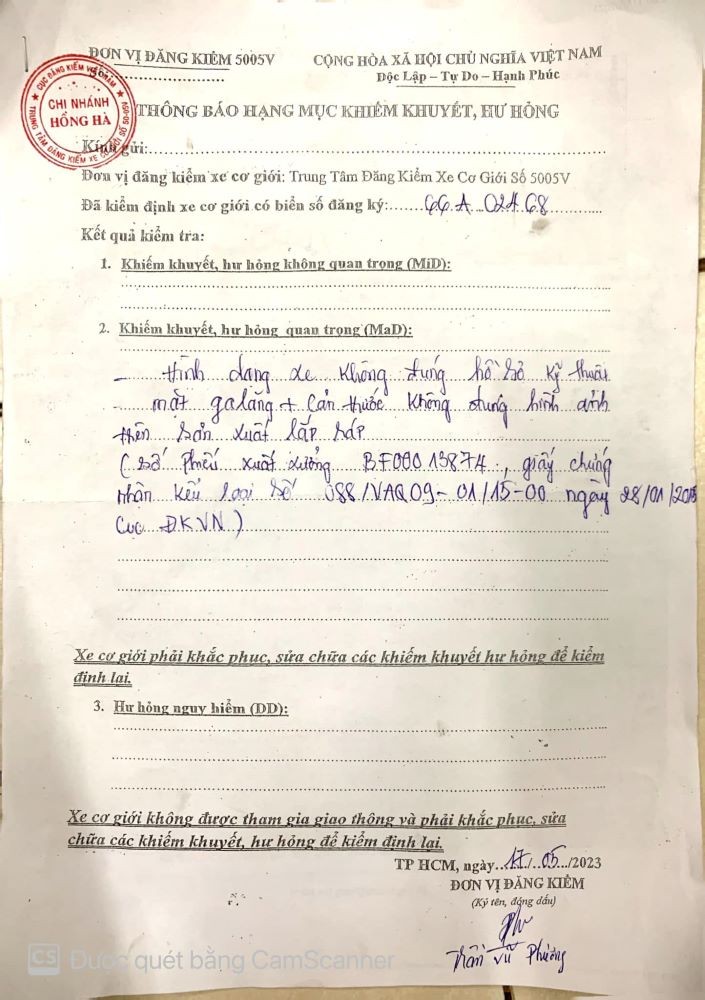 ĐƠN VỊ ĐĂNG KIỂM 5005V
CỘNG HÒA XÃ HỘI CHỦ NGHĨA VIỆT NAM
Số:
Độc Lập – Tự Do – Hạnh Phúc
CỤC ĐĂNG KIỂM VIỆT NAM
CHI NHÁNH
HỒNG HÀ
THÔNG BÁO HẠNG MỤC KHIẾM KHUYẾT, HƯ HỎNG
Kính gửi:
Đơn vị đăng kiểm xe cơ giới: Trung Tâm Đăng Kiểm Xe Cơ Giới Số 5005V
Đã kiểm định xe cơ giới có biển số đăng ký: 66A 024.68
Kết quả kiểm tra:
1. Khiếm khuyết, hư hỏng không quan trọng (MiD):
2. Khiếm khuyết, hư hỏng quan trọng (MaD):
– Hình dạng xe không đúng hồ sơ kỹ thuật
mặt galăng + Cản trước không đúng hình ảnh
trên sản xuất lắp ráp
(Số phiếu xuất xưởng BF00013874, giấy chứng
nhận kiểu loại số 088/VAQ09-01/15-00 ngày 28/01/2015
Cục ĐKVN)
Xe cơ giới phải khắc phục, sửa chữa các khiếm khuyết hư hỏng để kiểm
định lại.
3. Hư hỏng nguy hiểm (DD):
Xe cơ giới không được tham gia giao thông và phải khắc phục, sửa
chữa các khiếm khuyết, hư hỏng để kiểm định lại.
TP HCM, ngày 17/05/2023
ĐƠN VỊ ĐĂNG KIỂM
(Ký tên, đóng dấu)
Trần Vũ Phương
CS Được quét bằng CamScanner